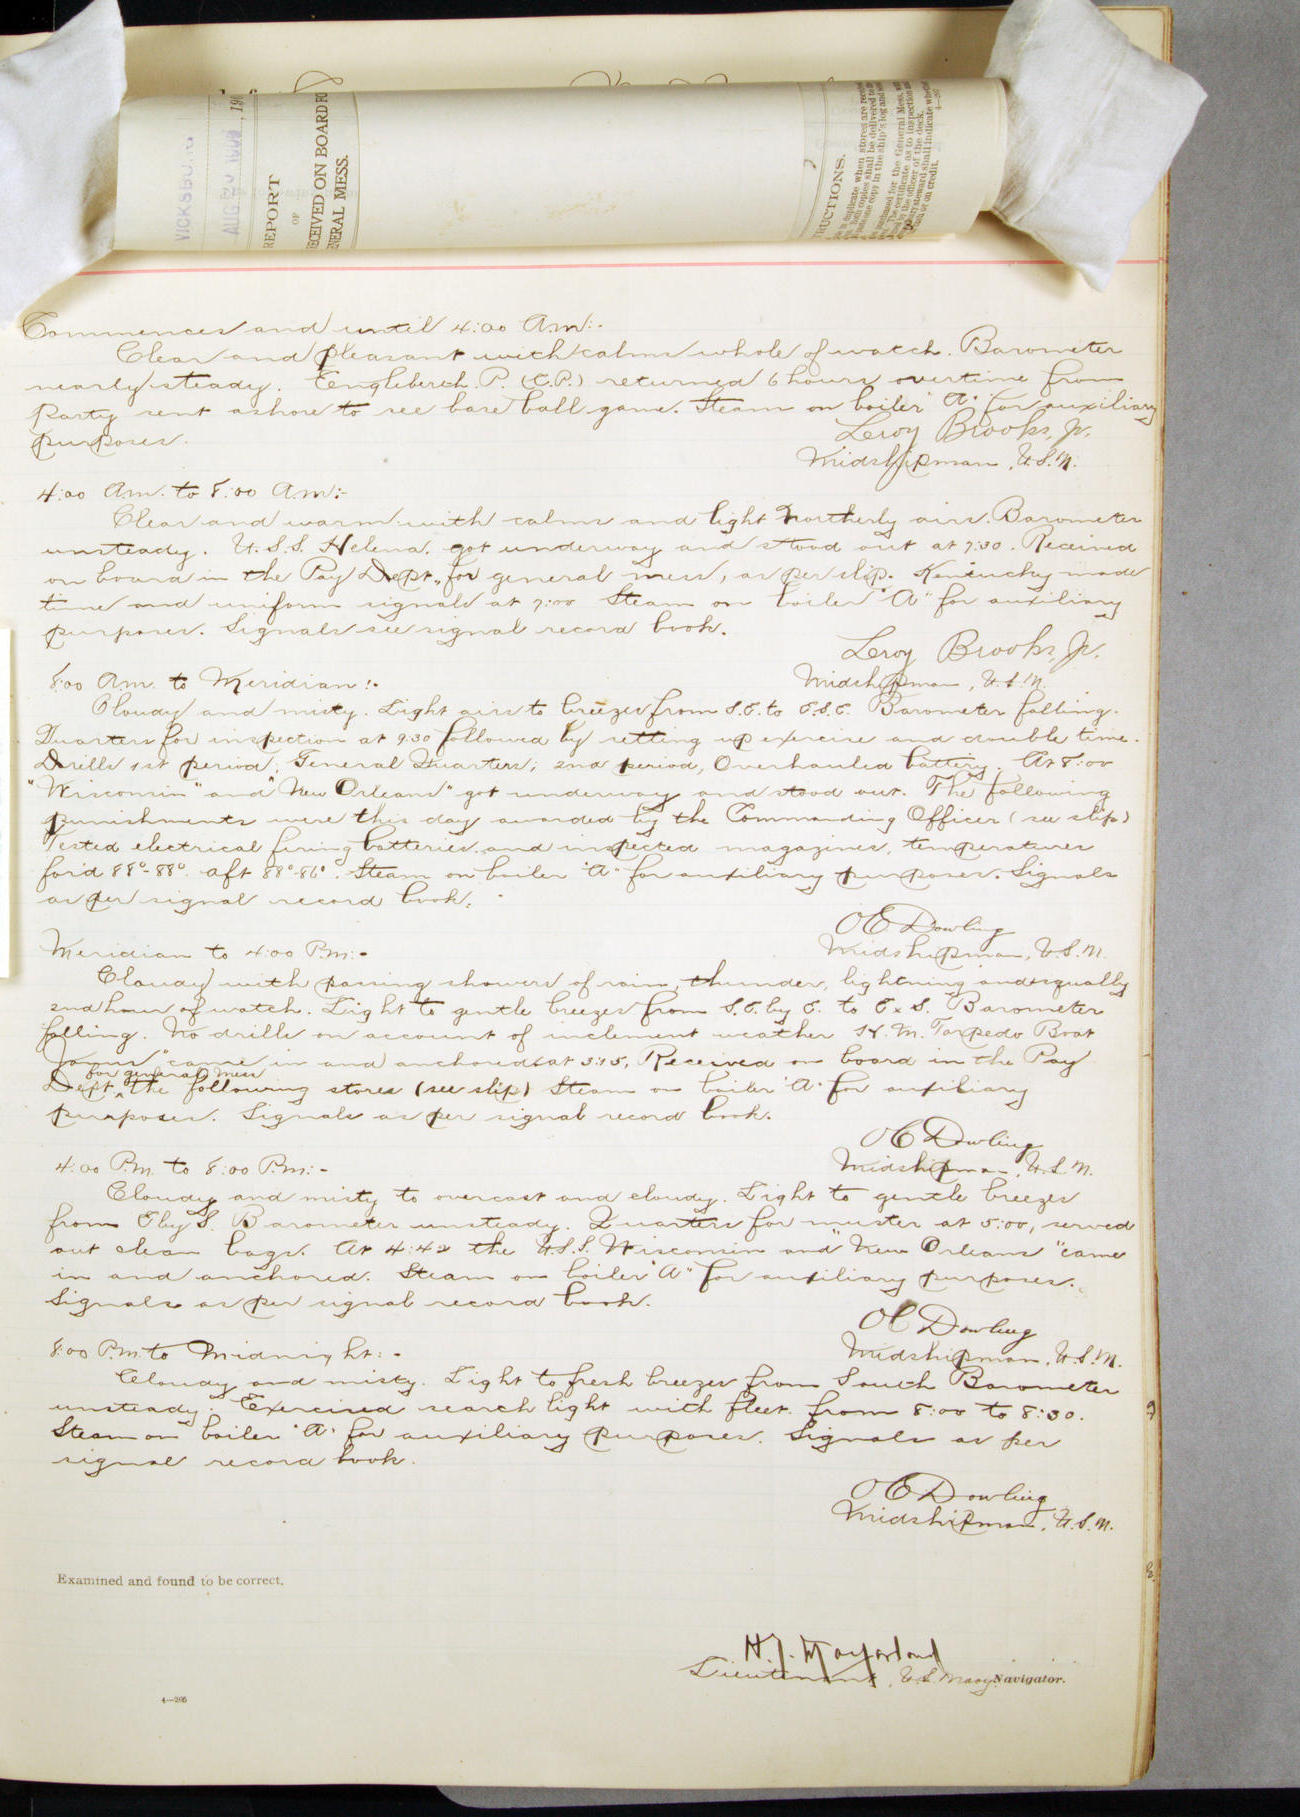 VICKSBURG
AUG 20 190
REPORT
OF
RECEIVED ON BOARD FO
ENERAL MESS.
RUCTIONS.
Commences and until 4:00 A.M:-
Clear and pleasant with calms whole of watch. Barometer
nearly steady. P. (C.P.) returned 6 hours overtime from
party sent ashore to see base ball game. Steam on boiler "A" for auxiliary
purposes.
Leroy Brooks, Jr.
Midshipman, U.S.N.
4:00 A.M. to 8:00 A.M:-
Clear and warm with calms and light Northerly airs. Barometer
unsteady. U.S.S. Helena, got underway and stood out at 7:30. Received
on board in the Pay Dept., for general mess, as per slip. Kentucky made
time and uniform signals at 7:00 Steam on boiler "A" for auxiliary
purposes. Signals see signal record book.
Leroy Brooks, Jr.
Midshipman, U.S.N.
8:00 A.M. to Meridian:-
Cloudy and misty. Light airs to breezes from S.E. to E.S.E. Barometer falling.
Quarters for inspection at 9:30 followed by setting up exercise and double time.
Drills 1st period, General Quarters; 2nd period, Overhauled battery. At 8:00
"Wisconsin" and "New Orleans" got underway and stood out. The following
punishments were this day awarded by the Commanding Officer (see slip)
Tested electrical firing batteries and inspected magazines, temperatures
for'd 88°-88° aft 88°-86°. Steam on boiler "A" for auxiliary purposes. Signals
as per signal record book.
O C Dowling
Midshipman, U.S.N.
Meridian to 4:00 P.M:-
Cloudy with passing showers of rain, thunder, lightning and squally
2nd hour of watch. Light to gentle breezes from S.E. by E. to E x S. Barometer
falling. No drills on account of inclement weather H.M. Torpedo Boat
"Janus" came in and anchored at 3:15. Received on board in the Pay
Dept. for general mess the following stores (see slip) Steam on boiler "A" for auxiliary
purposes. Signals as per signal record book.
O C Dowling
Midshipman, U.S.N.
4:00 P.M. to 8:00 P.M:-
Cloudy and misty to overcast and cloudy. Light to gentle breezes
from E by S. Barometer unsteady. Quarters for muster at 5:00, served
out clean bags. At 4:42 the U.S.S. Wisconsin and "New Orleans" came
in and anchored. Steam on boiler "A" for auxiliary purposes.
Signals as per signal record book.
O C Dowling
Midshipman, U.S.N.
8:00 P.M. to Midnight:-
Cloudy and misty. Light to fresh breezes from South Barometer
unsteady. Exercised search light with fleet from 8:00 to 8:30.
Steam on boiler "A" for auxiliary purposes. Signals as per
signal record book.
O C Dowling
Midshipman, U.S.N.
Examined and found to be correct.
Lieutenant, U.S. Navy Navigator.
4—295